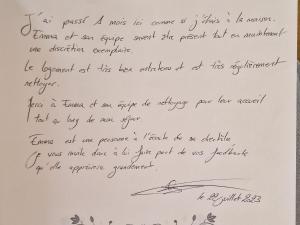 J'ai passé 1 mois ici comme si j'étais à la maison.
Emma et son équipe savent être présent tout en maintenant
une discrétion exemplaire.
Le logement est très bien entretenu et est très régulièrement
nettoyer.
Merci à Emma et son équipe de nettoyage pour leur accueil
tout au long de mon séjour.
Emma est une personne à l'écoute de sa clientèle
je vous invite donc à lui faire part de vos feedbacks
qu'elle appréciera grandement.
le 22 juillet 2023